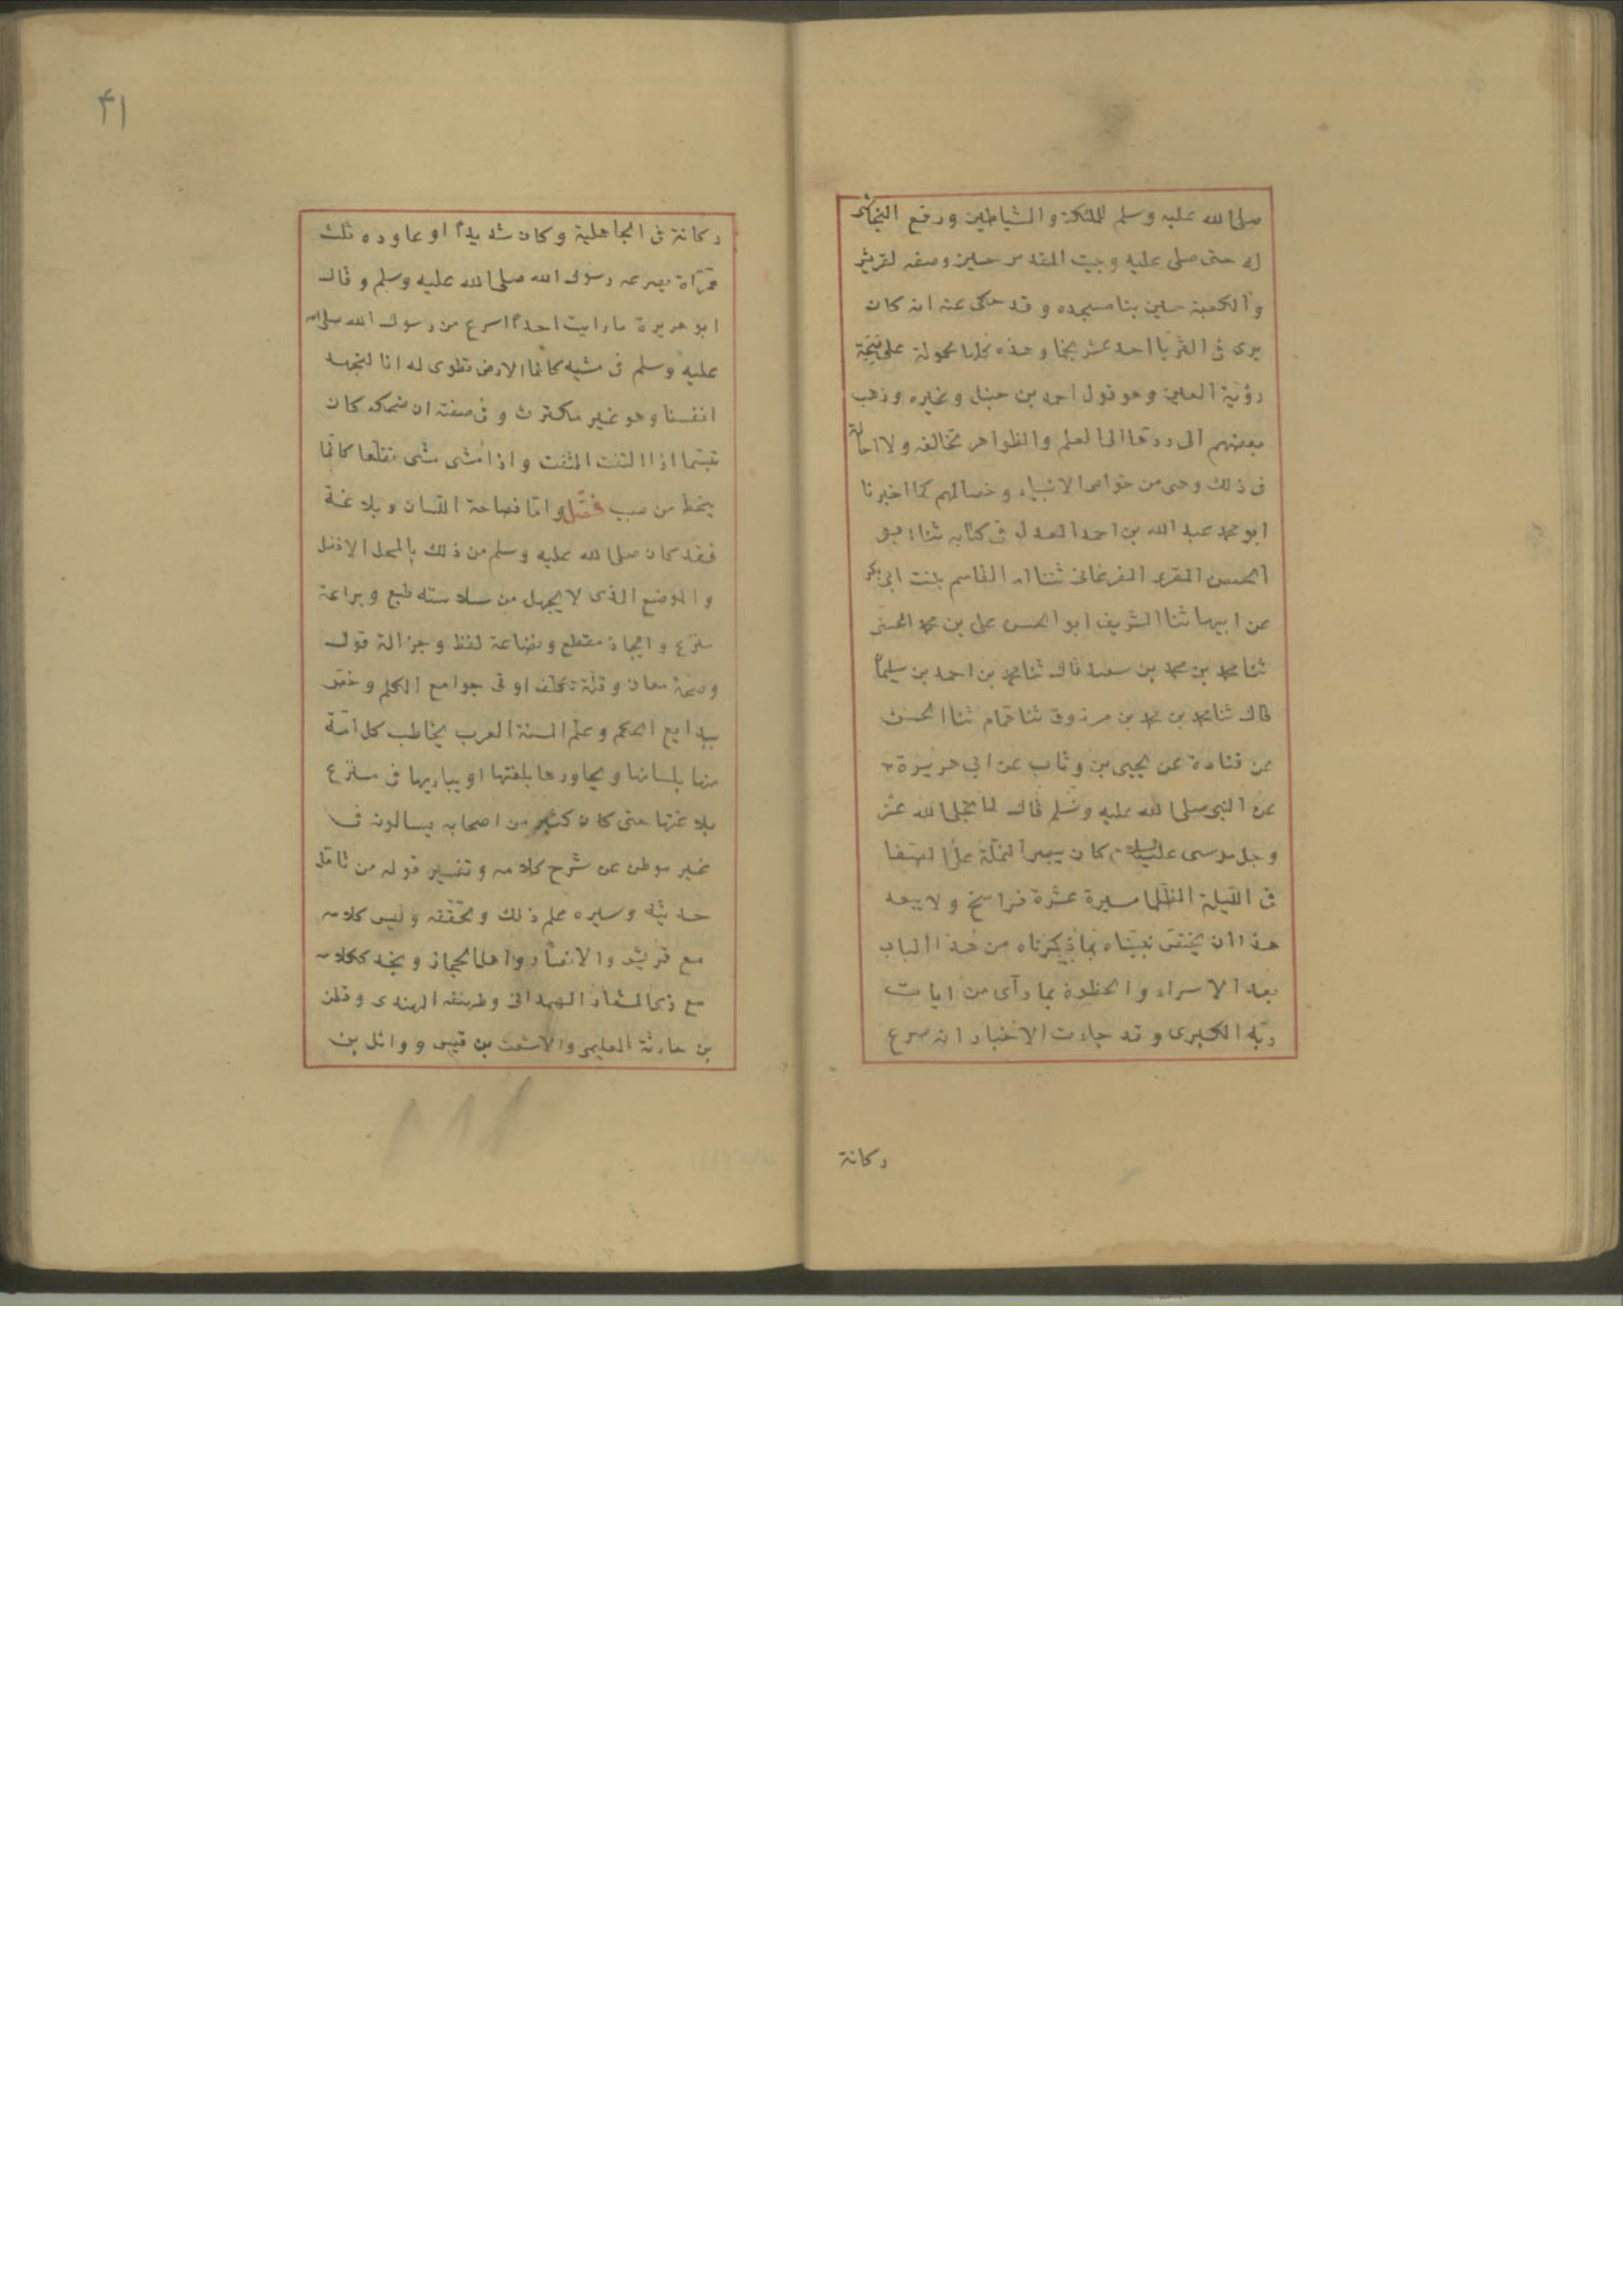 صلى الله عليه وسلم للملئكة والشياطين ورفع النجاشى
له حتى صلى عليه وبيت المقدس حين وصفه لقريش
والكعبة حين بنا مسجده وقد حكى عنه انه كان
يرى فى الثريا احد عشر نجما وهذه كلها محمولة على
رؤية العين وهو قول احمد بن حنبل وغيره وذهب
بعضهم الى ردها الى العلم والظواهر تخالفه ولا احالة
فى ذلك وهى من خواص الانبياء وخصالهم كما اخبرنا
ابو محمد عبد الله بن احمد العدل فى كتابه ثنا ابو
الحسن المقرى الفرغانى ثنا ام القاسم بنت ابى بكر
عن ابيها ثنا الشريف ابو الحسن على بن محمد الحسنى
ثنا محمد بن محمد بن سعيد قال ثنا محمد بن احمد بن سليمان
قال ثنا محمد بن محمد بن مرزوق ثنا همام ثنا الحسن
عن قتادة عن يحيى بن وثاب عن ابى هريرة
عن النبى صلى الله عليه وسلم قال لما تجلى الله عز
وجل موسى عليه السلام كان يبصر النملة على الصفا
فى الليلة الظلما مسيرة عشرة فراسخ ولا يبعد
هذا ان يختص نبيناه بما ذكرناه من هذا الباب
بعد الاسراء والحظوة بما رآى من ايات
ربه الكبرى وقد جاءت الاخبار انه صرع
ركانة
۴۱
ركانة فى الجاهلية وكان شديداً او عاوده ثلث
مرّاة يصرعه رسول الله صلى الله عليه وسلم وقال
ابو هريرة ما رايت احداً اسرع من رسول الله صلى الله
عليه وسلم فى مشيه كانما الارض تطوى له انا لنجهد
انفسنا وهو غير مكترث وفى صفته ان ضحكه كان
تبسّما اذا التفت التفت واذا مشى مشى تقلعا كانّما
ينحط من صبب فصل وامّا فصاحة اللسان وبلاغة
فقد كان صلى الله عليه وسلم من ذلك بالمحل الافضل
والموضع الذى لا يجهل من سلاسته طبع وبراعة
منزع وايجاز مقطع ونصاعة لفظ وجزالة قول
وصحّة معان وقلّة تكلف اوتى جوامع الكلم وخصّ
ببدايع الحكم وعلم السنة العرب يخاطب كل امّة
منها بلسانها ويحاورها بلغتها او يباريها فى منزع
بلاغتها حتى كان كثير من اصحابه يسالونه فى
غير موطن عن شرح كلامه وتفسير قوله من تامّل
حديثه وسيره علم ذلك وتحققه وليس كلامه
مع قريش والانصار واهل الحجاز ونجد ككلامه
مع ذى المشعار الهمدانى وطهفه الهندى وقطن
بن حارثة العليمى والاشعث بن قيس ووائل بن